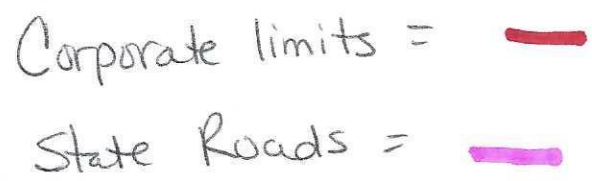 Corporate limits =
State Roads =